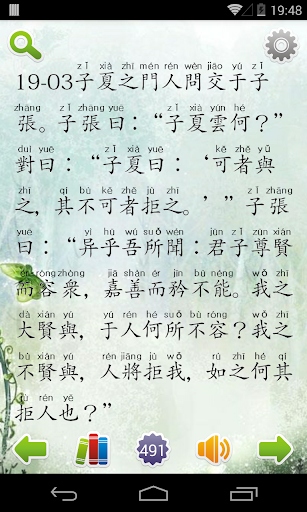 19:48
zǐ xià zhī mén rén wèn jiāo yú zǐ
19-03子夏之門人問交于子
zhāng zǐ zhāng yuē zǐ xià yún hé
張。子張曰：“子夏雲何？”
duì yuē zǐ xià yuē kě zhě yǔ
對曰：“子夏曰：‘可者與
zhī qí bù kě zhě jù zhī zǐ zhāng
之，其不可者拒之。’”子張
yuē yì hū wú suǒ wén jūn zǐ zūn xián
曰：“异乎吾所聞：君子尊賢
ér róng zhòng jiā shàn ér jīn bù néng wǒ zhī
而容衆，嘉善而矜不能。我之
dà xián yú yú rén hé suǒ bù róng wǒ zhī
大賢與，于人何所不容？我之
bù xián yú rén jiāng jù wǒ rú zhī hé qí
不賢與，人將拒我，如之何其
jù rén yě
拒人也？”
491